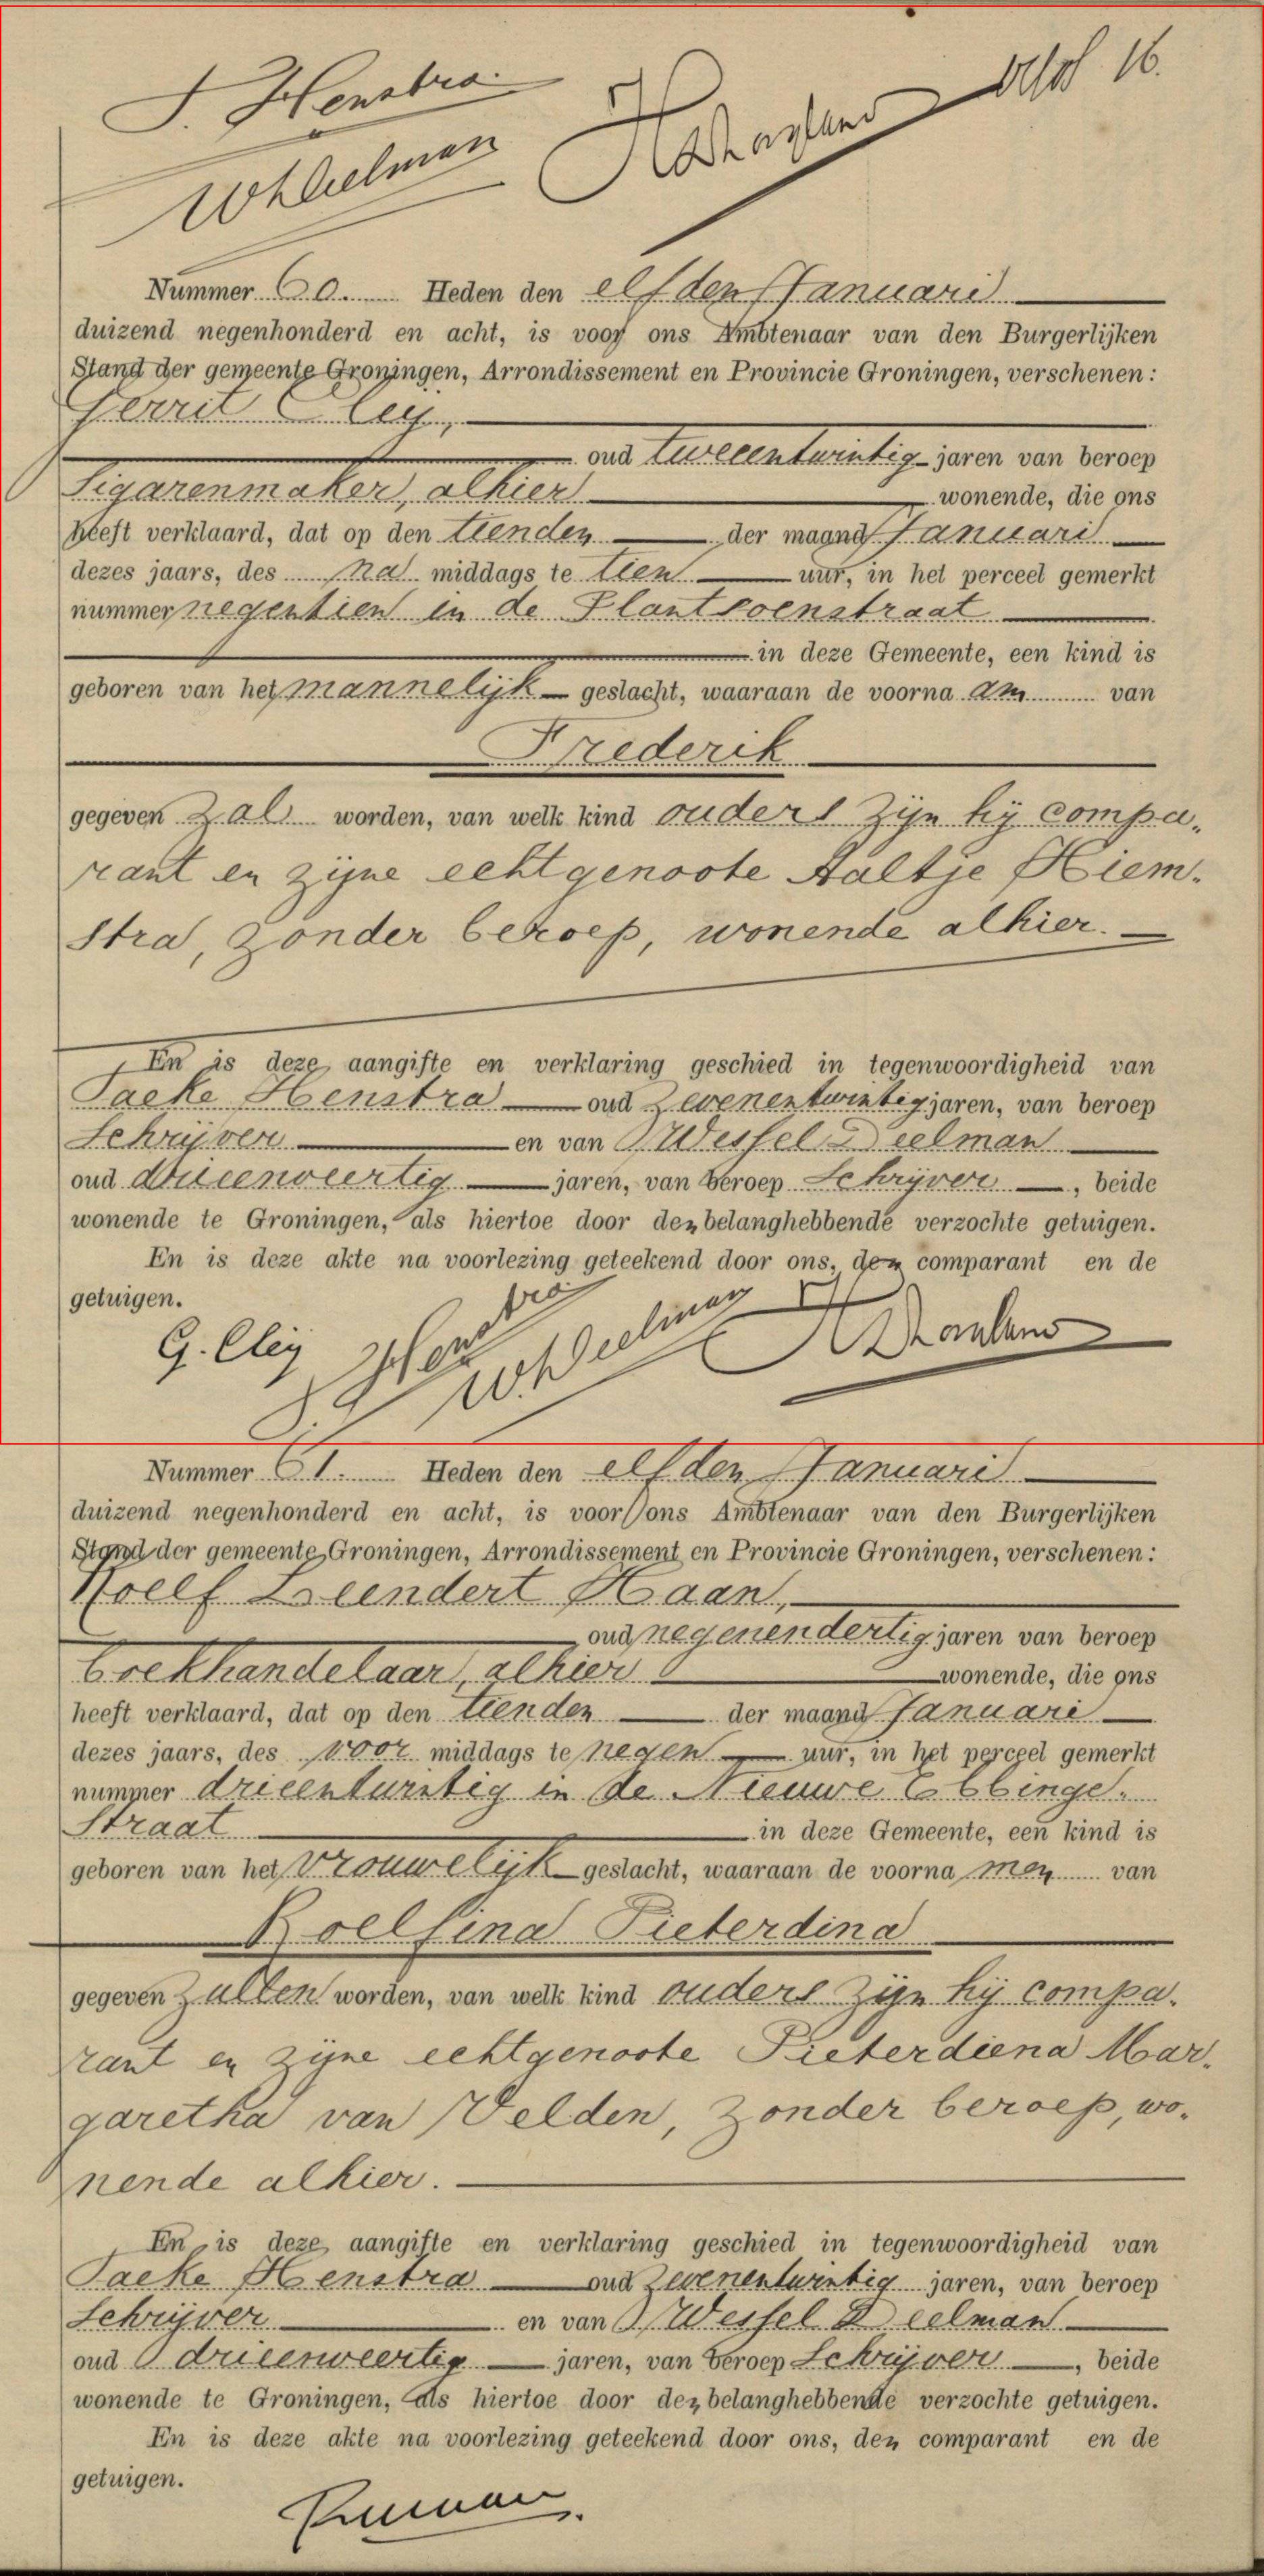 J. Henstra
WHDeelman
16.
Nummer 60. Heden den elfden Januari
duizend negenhonderd en acht, is voor ons Ambtenaar van den Burgerlijken
Stand der gemeente Groningen, Arrondissement en Provincie Groningen, verschenen:
Gerrit Cleij,
oud tweeentwintig jaren van beroep
Sigarenmaker, alhier wonende, die ons
heeft verklaard, dat op den tienden der maand Januari
dezes jaars, des na middags te tien uur, in het perceel gemerkt
nummer negentien in de Plantsoenstraat
in deze Gemeente, een kind is
geboren van het mannelijk geslacht, waaraan de voorna am van
Frederik
gegeven zal worden, van welk kind ouders zijn hij compa-
rant en zijne echtgenoote Aaltje Hiem-
stra, zonder beroep, wonende alhier.
En is deze aangifte en verklaring geschied in tegenwoordigheid van
Taeke Henstra oud zevenentwintig jaren, van beroep
Schrijver en van Wessel Deelman
oud drieenveertig jaren, van beroep Schrijver, beide
wonende te Groningen, als hiertoe door den belanghebbende verzochte getuigen.
En is deze akte na voorlezing geteekend door ons, den comparant en de
getuigen.
G. Cleij
Henstra
WHDeelman
Nummer 61. Heden den elfden Januari
duizend negenhonderd en acht, is voor ons Ambtenaar van den Burgerlijken
Stand der gemeente Groningen, Arrondissement en Provincie Groningen, verschenen:
Roelf Leendert Haan,
oud negenendertig jaren van beroep
boekhandelaar, alhier wonende, die ons
heeft verklaard, dat op den tienden der maand Januari
dezes jaars, des voor middags te negen uur, in het perceel gemerkt
nummer drieentwintig in de Nieuwe Ebbinge-
straat in deze Gemeente, een kind is
geboren van het vrouwelijk geslacht, waaraan de voorna men van
Roelfina Pieterdina
gegeven zullen worden, van welk kind ouders zijn hij compa-
rant en zijne echtgenoote Pieterdiena Mar-
garetha van Velden, zonder beroep, wo-
nende alhier.
En is deze aangifte en verklaring geschied in tegenwoordigheid van
Taeke Henstra oud zevenentwintig jaren, van beroep
Schrijver en van Wessel Deelman
oud drieenveertig jaren, van beroep Schrijver, beide
wonende te Groningen, als hiertoe door den belanghebbende verzochte getuigen.
En is deze akte na voorlezing geteekend door ons, den comparant en de
getuigen.